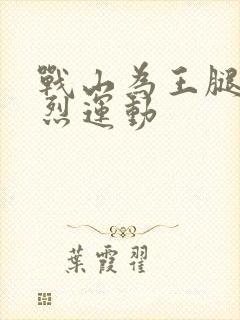 戰山為王腿
烈運動
葉霞翟